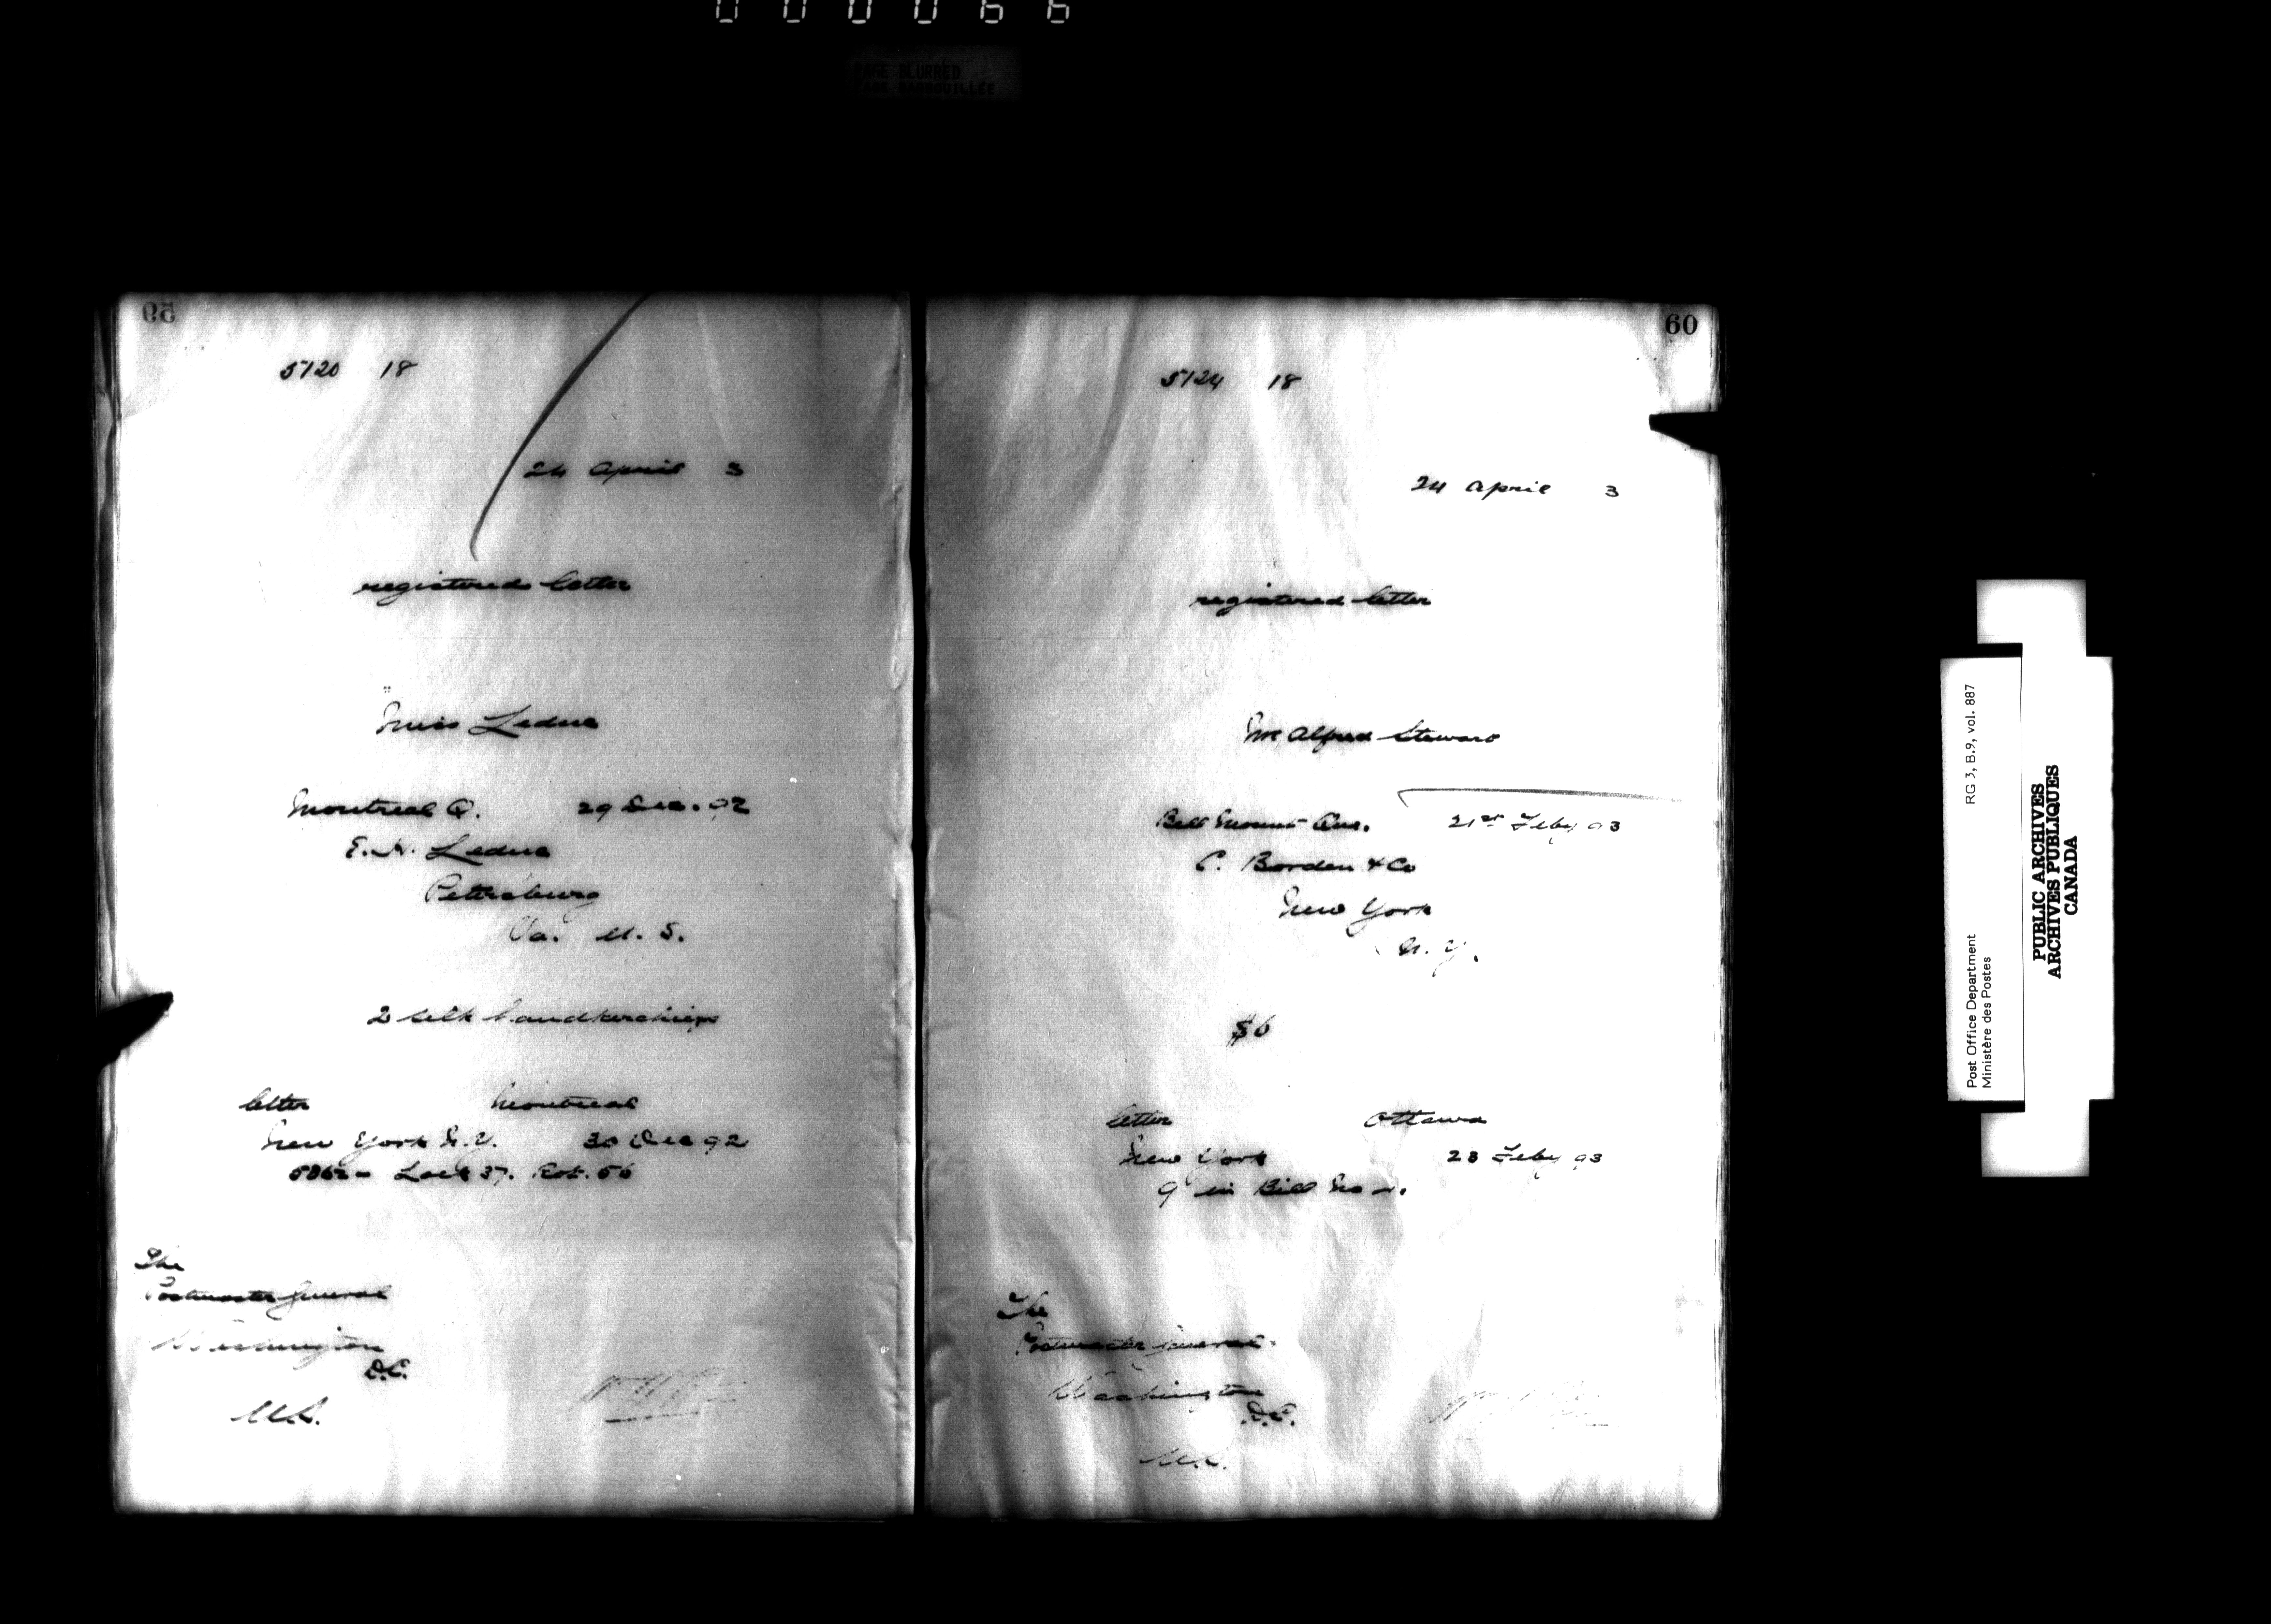 000066
PAGE BLURRED
PAGE BARBOUILLEE
59
5120 18
24 April 3
registered letter
Miss Leduc
Montreal Q. 29 Dec. 92
E. H. Leduc
Petersburg
Va. U. S.
2 silk handkerchiefs
letter Montreal
New York N.Y. 30 Dec 92
5862 - Lock 37. Rot. 56
The
Postmaster General
Washington
D.C.
U.S.
60
5124 18
24 April 3
registered letter
Mr Alfred Steward
Bell Mount Que. 21st Feby 93
C. Borden & Co
New York
N. Y.
$6
letter Ottawa
New York 23 Feby 93
9 in Bill No
The
Postmaster General
Washington
D.C.
U.S.
Post Office Department
Ministère des Postes
RG 3, B.9, vol. 887
PUBLIC ARCHIVES
ARCHIVES PUBLIQUES
CANADA